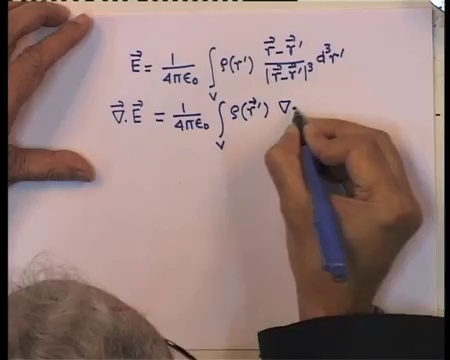 \vec{E} = \frac{1}{4\pi\epsilon_0} \int_V \rho(r') \frac{\vec{r} - \vec{r}'}{|\vec{r} - \vec{r}'|^3} d^3r'
\vec{\nabla} . \vec{E} = \frac{1}{4\pi\epsilon_0} \int_V \rho(\vec{r}') \nabla .